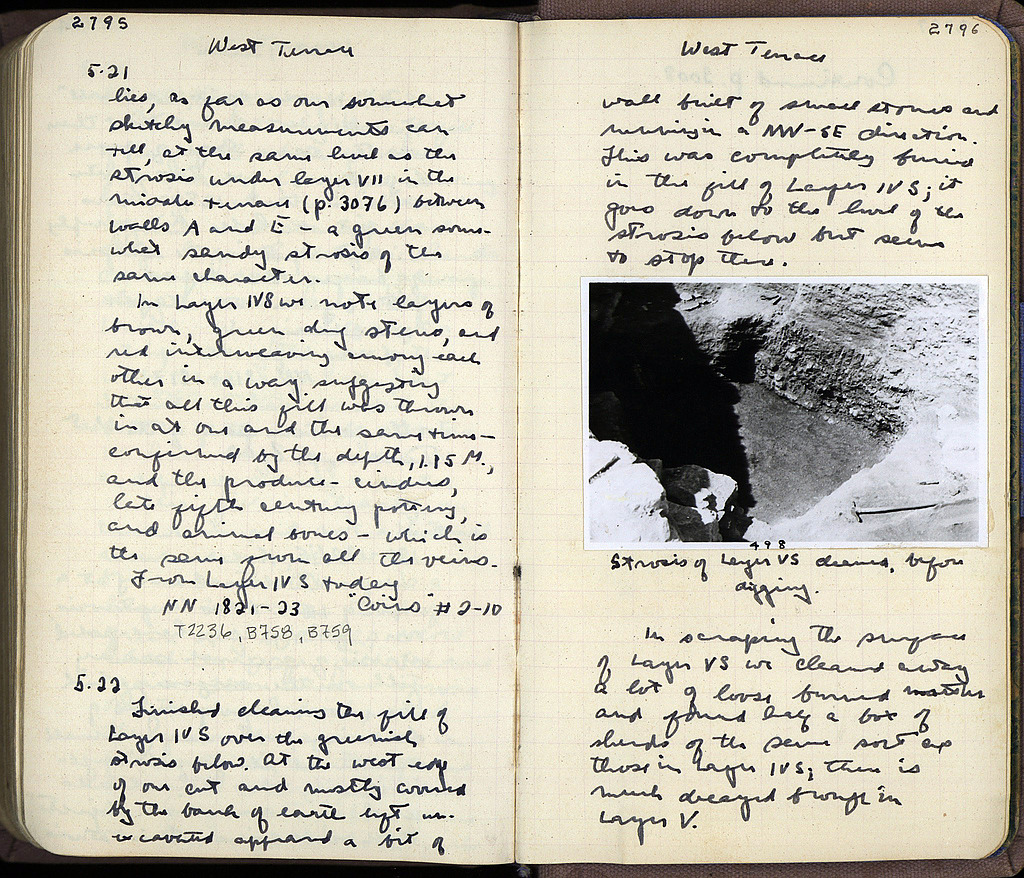 2795
West Terrace
5.21
lies, as far as our somewhat
sketchy measurements can
tell, at the same level as the
strosis under layer VII in the
middle terrace (p. 3076) between
walls A and E – a green some-
what sandy strosis of the
same character.
In Layer IVS we note layers of
brown, green dug stereo, and
red interweaving among each
other in a way suggesting
that all this fill was thrown
in at one and the same time –
confirmed by the depth, 1.15 M.,
and the produce – cinders,
late fifth century pottery,
and animal bones – which is
the same from all the veins.
From Layer IVS today
NN 1821-23 "Coins" # 2-10
T2236, B758, B759
5.22
Finished cleaning the fill of
Layer IVS over the greenish
strosis below. At the west edge
of our cut and mostly covered
by the bank of earth left un-
excavated appeared a bit of
2796
West Terrace
wall built of small stones and
running in a NW-SE direction.
This was completely buried
in the fill of Layer IVS; it
goes down to the level of the
strosis below but seems
to stop there.
498
Strosis of Layer VS cleaned, before
digging.
In scraping the surface
of Layer VS we cleaned away
a lot of loose burned matter
and found half a box of
sherds of the same sort as
those in Layer IVS; there is
much decayed bronze in
Layer V.